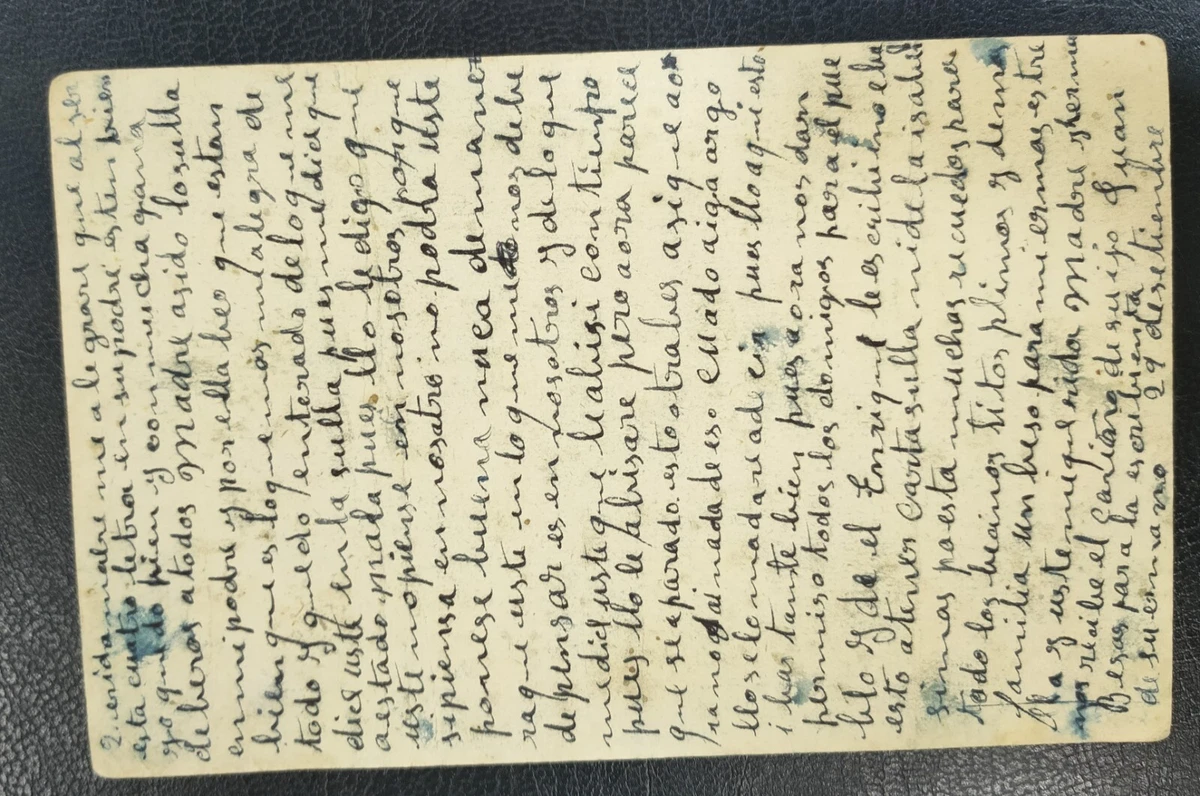 Querida madre me a legraré que al ser
esta cuatro letras en su podre esten bien
yo quedo bien y con mucha gana
de beros a todos Madre asido lo sulla
en mi podre y por ella beo que estan
bien que es lo que emos me alegra de
todo y quedo enterado de lo que me
dice usté en la sulla pues me dice que
a estado mala pues llo le digo que
usté no piense en nosotros porque
si piensa en nosotro no podra usté
ponerse buena nuca de manera
que usté en lo que menos debe
de pensar es en nosotros y de lo que
me dice usté que le abise con tiempo
pues llo le abisare pero aora parece
que se a parado esto otrabes asi que aor
no ai nada de eso cuado aiga argo
llos elo madare a decir pues llo aqui esto
i bastante bien pues aora nos dan
permisso todos los domigos para el pue
blo y de el Enrique les escribi no e bu
esto a tener carta sulla ni de la isabel
sin mas po esta muchos recuedos para
todo los becinos titos plimos y demas
familia un beso para mi ermas estre
lla y usté me querida Madre y herma
nos recibe el cariño de su ijo Juan
Besos para la escribienta
de su ermano 29 de setienbre